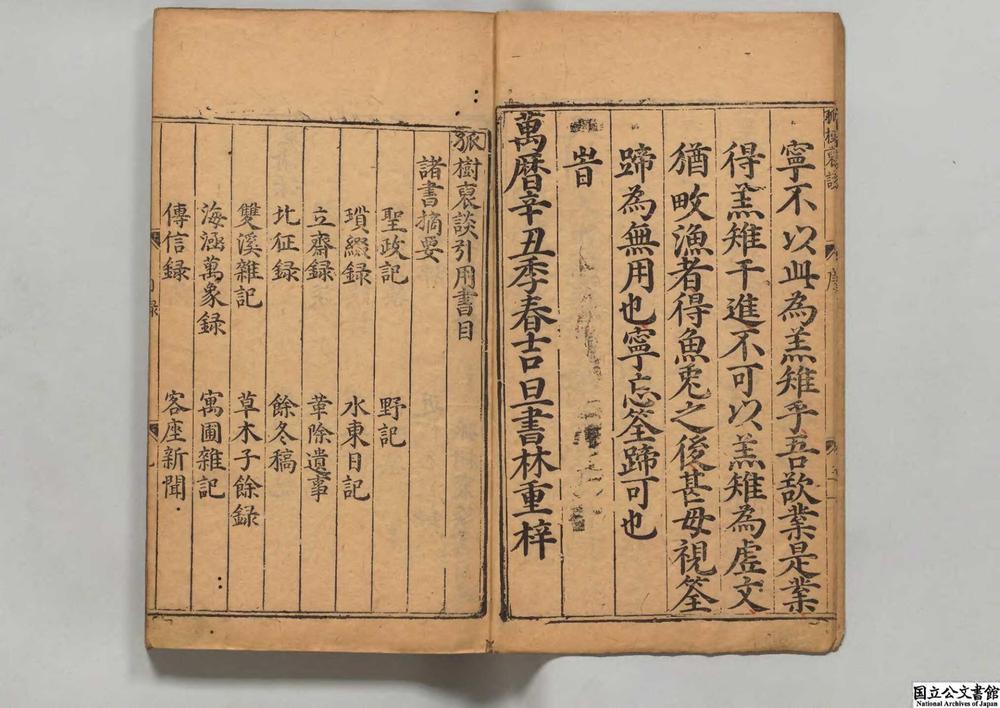 寧不以此為羔雉乎吾歆業是業
得羔雉干進不可以羔雉為虛文
猶畋漁者得魚兎之後甚毋視筌
蹄為無用也寧忘筌蹄可也
旹
萬暦辛丑季春吉旦書林重梓
狐樹裒談引用書目
諸書摘要
聖政記 野記
瑣綴録 水東日記
立齋録 革除遺事
北征録 餘冬稿
雙溪雜記 草木子餘録
海涵萬象録 寓圃雜記
傳信録 客座新聞
国立公文書館
National Archives of Japan